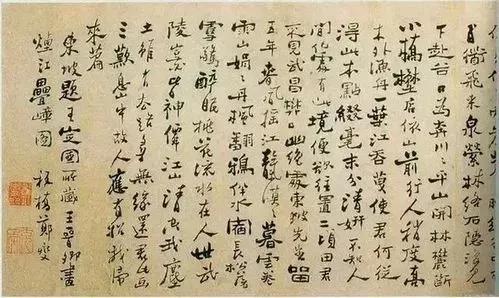 道飛来泉縈林絡石隱復見
下赴谷口為奔川川平山開林麓斷
小橋野店依山前行人稍度喬
木外漁舟一葉江吞天使君何從
得此本點綴毫末分清妍不知人
間何處有此境便欲往置二頃田君
不見武昌樊口幽絕處東坡先生留
五年春風搖江靜漠漠暮雲卷
雨山娟娟丹楓翻鴉伴水宿長松落
雪驚醉眠桃花流水在人世武
陵豈必皆神僊江山清空我塵
土雖有去路尋無緣還君此畫
三歎息山中故人應有招我歸
來篇
東坡題王定國所藏王晉卿畫
煙江疊嶂圖 板橋鄭燮